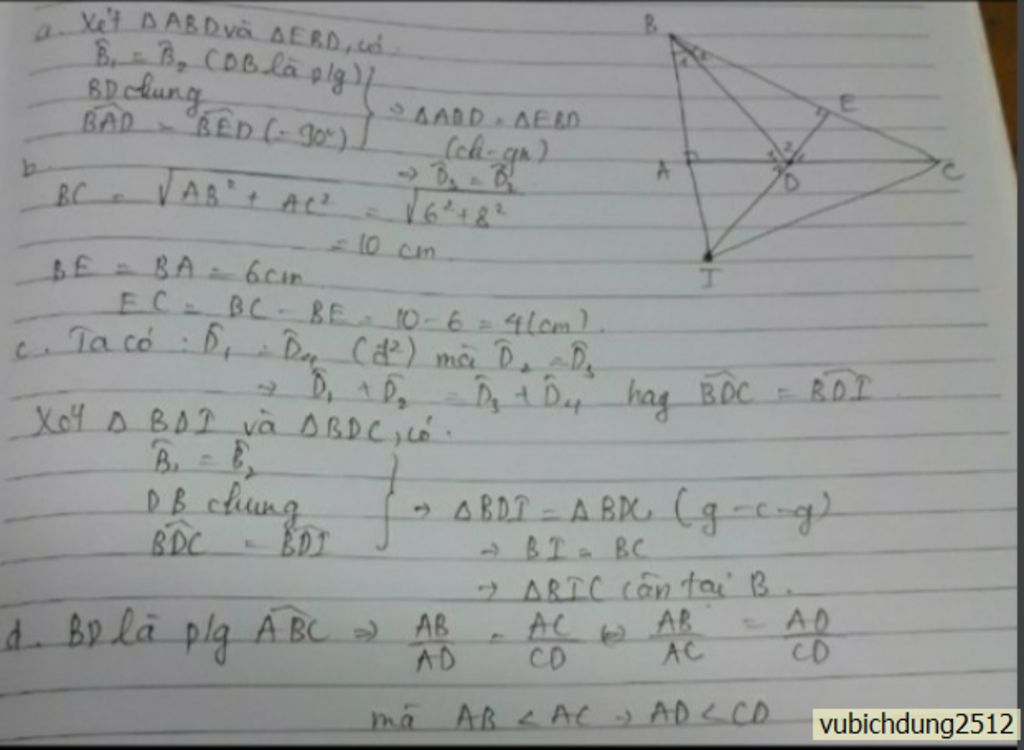 a. Xét ΔABD và ΔEBD, có.
B̂₁ = B̂₂ (DB là p/g)
BD chung
BAD = BED (= 90°)
→ ΔABD = ΔEBD
(ch-gn)
→ D̂₃ = D̂₂
b
BC = √AB² + AC² = √6² + 8²
= 10 cm
BE = BA = 6cm
EC = BC - BE = 10 - 6 = 4(cm).
c. Ta có: D̂₁ = D̂₄ (đ²) mà D̂₂ = D̂₃
→ D̂₁ + D̂₂ = D̂₃ + D̂₄ hay BDC = BDI
Xét Δ BDI và ΔBDC, có.
B̂₁ = B̂₂
DB chung
BDC = BDI
→ ΔBDI = ΔBDC (g-c-g)
→ BI = BC
→ ΔBIC cân tại B.
d. BD là p/g ABC ⇒ AB/AD = AC/CD ⇔ AB/AC = AD/CD
mà AB < AC → AD < CD
B
E
A
D
C
I
vubichdung2512